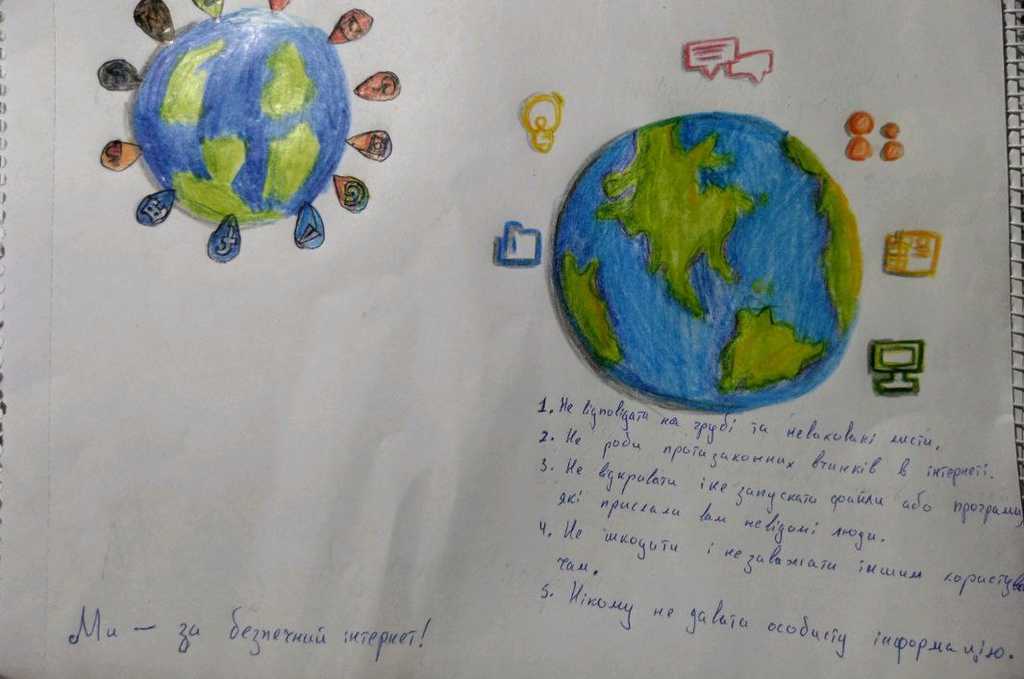 1. Не відповідати на грубі та невиховані листи.
2. Не роби протизаконних вчинків в інтернеті.
3. Не відкривати і не запускати файли або програми,
які прислали вам невідомі люди.
4. Не шкодити і не заважати іншим користува
чам.
5. Нікому не давати особисту інформацію.
Ми — за безпечний інтернет!